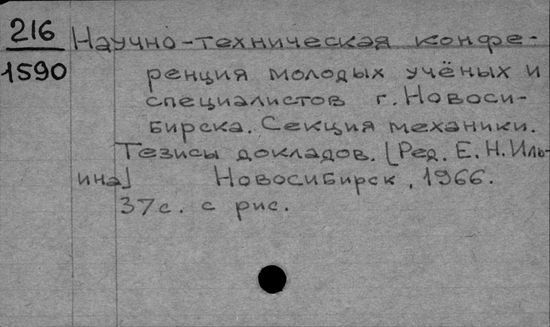 216
1590
Научно-техническая конфе-
ренция молодых учёных и
специалистов г. Новоси-
бирска. Секция механики.
Тезисы докладов. [Ред. Е. Н. Иль-
ина] Новосибирск, 1966.
37с. с рис.